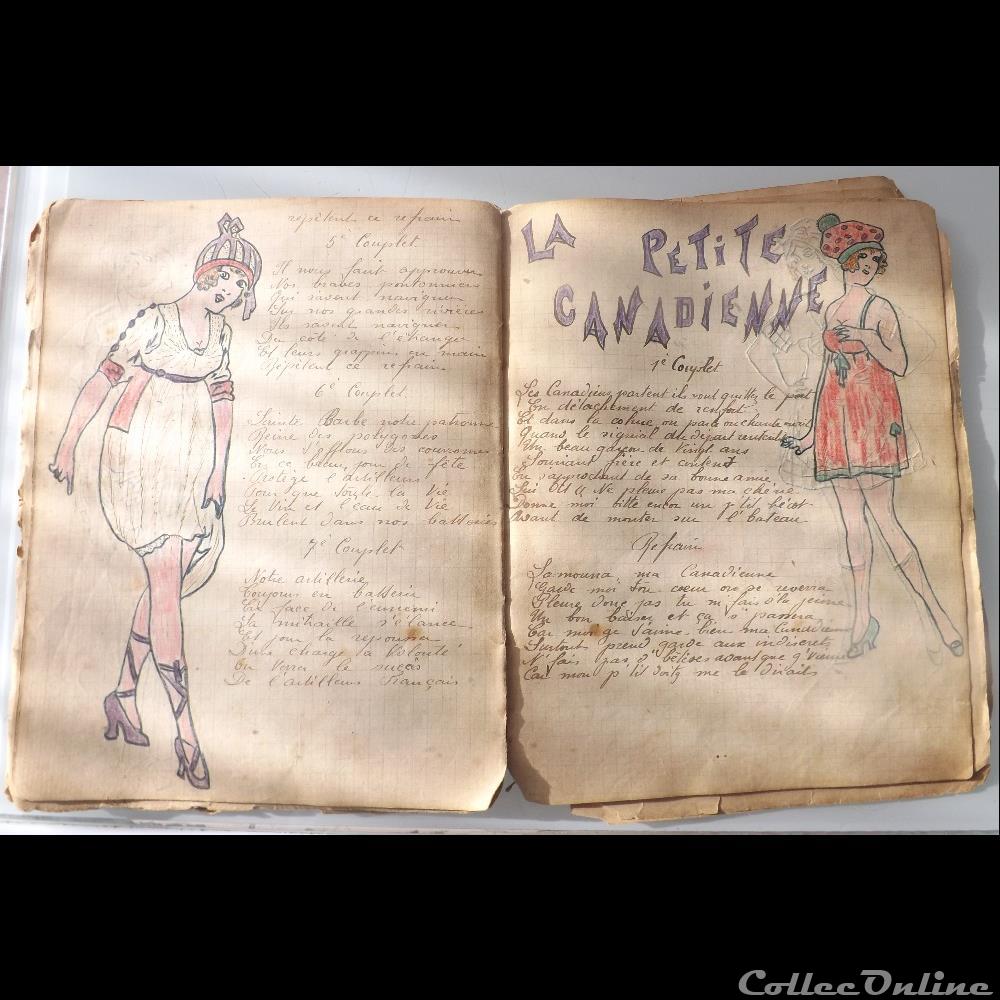 répètent ce refrain
5e Couplet
Il nous faut approuver
Nos braves pontonniers
Qui savent naviguer
Sur nos grandes rivières
Ils savent naviguer
Du côté de l'étranger
Et leurs grappins en main
Répètent ce refrain
6e Couplet
Sainte Barbe notre patronne
Reine des polygones
Nous t'offrons des couronnes
En ce beau jour de fête
Protège l'artilleurs
Pour que toute la Vie
Le Vin et l'eau de Vie
Brulent dans nos batteries
7e Couplet
Notre artillerie
Toujours en batterie
En face de l'ennemi
La mitraille s'élance
Et pour la repousser
charge la Volonté
On Verra le succès
De l'artilleurs Français
LA PETITE
CANADIENNE
1e Couplet
Les Canadiens partent ils vont quitter le port
En détachement de renfort
Et dans la cohue, on parle on chante
Quand le signal du départ
Un beau garçon de Vingt ans
Souriant fière et content
En s'approchant de sa bonne amie
Lui dit Ne pleure pas ma chérie
Donne moi vitte encor un p'tit bécot
Avant de monter sur l'bateau
Refrain
ma Canadienne
Garde moi ton cœur on se reverra
Pleure donc pas tu m'fais d'la peine
Un bon baiser et ça s'passera
Car moi je t'aime bien ma Canadienne
Surtout prend garde aux indiscrets
N'fais pas d'bêtises avant que j'vienne
Car mon p'tit doigt me le dirait
CollecOnline